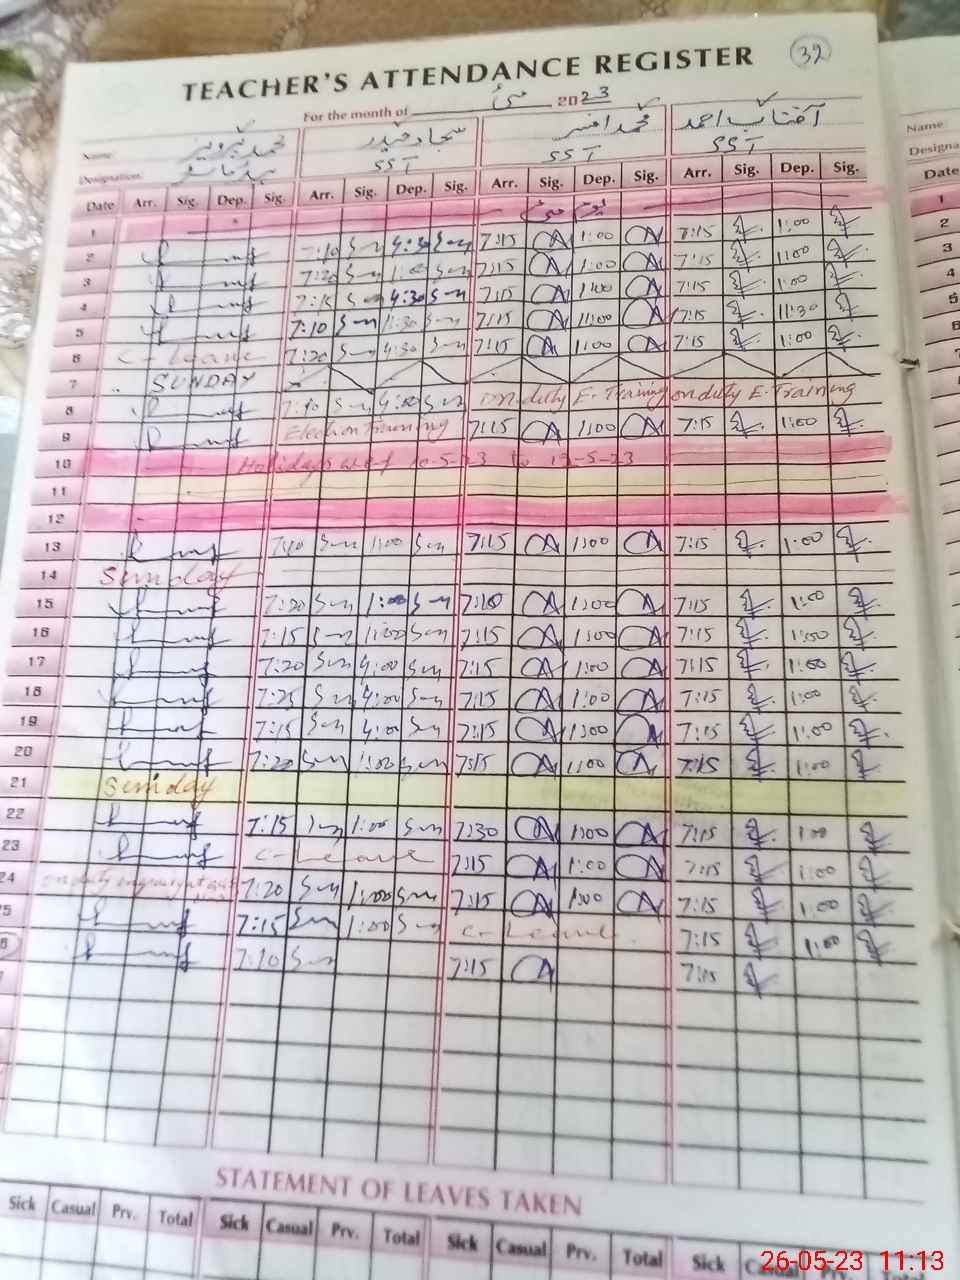 TEACHER'S ATTENDANCE REGISTER 32
For the month of مئی 2023
Name: محمد پرویز سجاد حیدر محمد افسر آفتاب احمد
Designation: ہیڈ ماسٹر SST SST SST
Date Arr. Sig. Dep. Sig. Arr. Sig. Dep. Sig. Arr. Sig. Dep. Sig. Arr. Sig. Dep. Sig.
1 یوم مئی
2 7:10 4:30 7:15 1:00 7:15 1:00
3 7:20 1:00 7:15 1:00 7:15 1:00
4 7:15 4:30 7:15 1:00 7:15 1:00
5 7:10 11:30 7:15 11:00 7:15 11:30
6 C-Leave 7:20 4:30 7:15 1:00 7:15 1:00
7 SUNDAY
8 7:10 4:00 On duty E. Training on duty E. Training
9 Election Training 7:15 1:00 7:15 1:00
10 Holidays w.e.f 10-5-23 to 12-5-23
11
12
13 7:10 1:00 7:15 1:00 7:15 1:00
14 Sunday
15 7:20 1:00 7:10 1:00 7:15 1:00
16 7:15 1:00 7:15 1:00 7:15 1:00
17 7:20 4:00 7:15 1:00 7:15 1:00
18 7:25 4:00 7:15 1:00 7:15 1:00
19 7:15 4:00 7:15 1:00 7:15 1:00
20 7:20 1:00 7:15 1:00 7:15 1:00
21 Sunday
22 7:15 1:00 7:30 1:00 7:15 1:00
23 C-Leave 7:15 1:00 7:15 1:00
24 on duty 7:20 1:00 7:15 1:00 7:15 1:00
25 7:15 1:00 C-Leave 7:15 1:00
26 7:20 7:15 7:15
STATEMENT OF LEAVES TAKEN
Sick Casual Prv. Total Sick Casual Prv. Total Sick Casual Prv. Total Sick Casual Prv.
Name:
Designa
Date
1
2
3
4
5
6
7
26-05-23 11:13